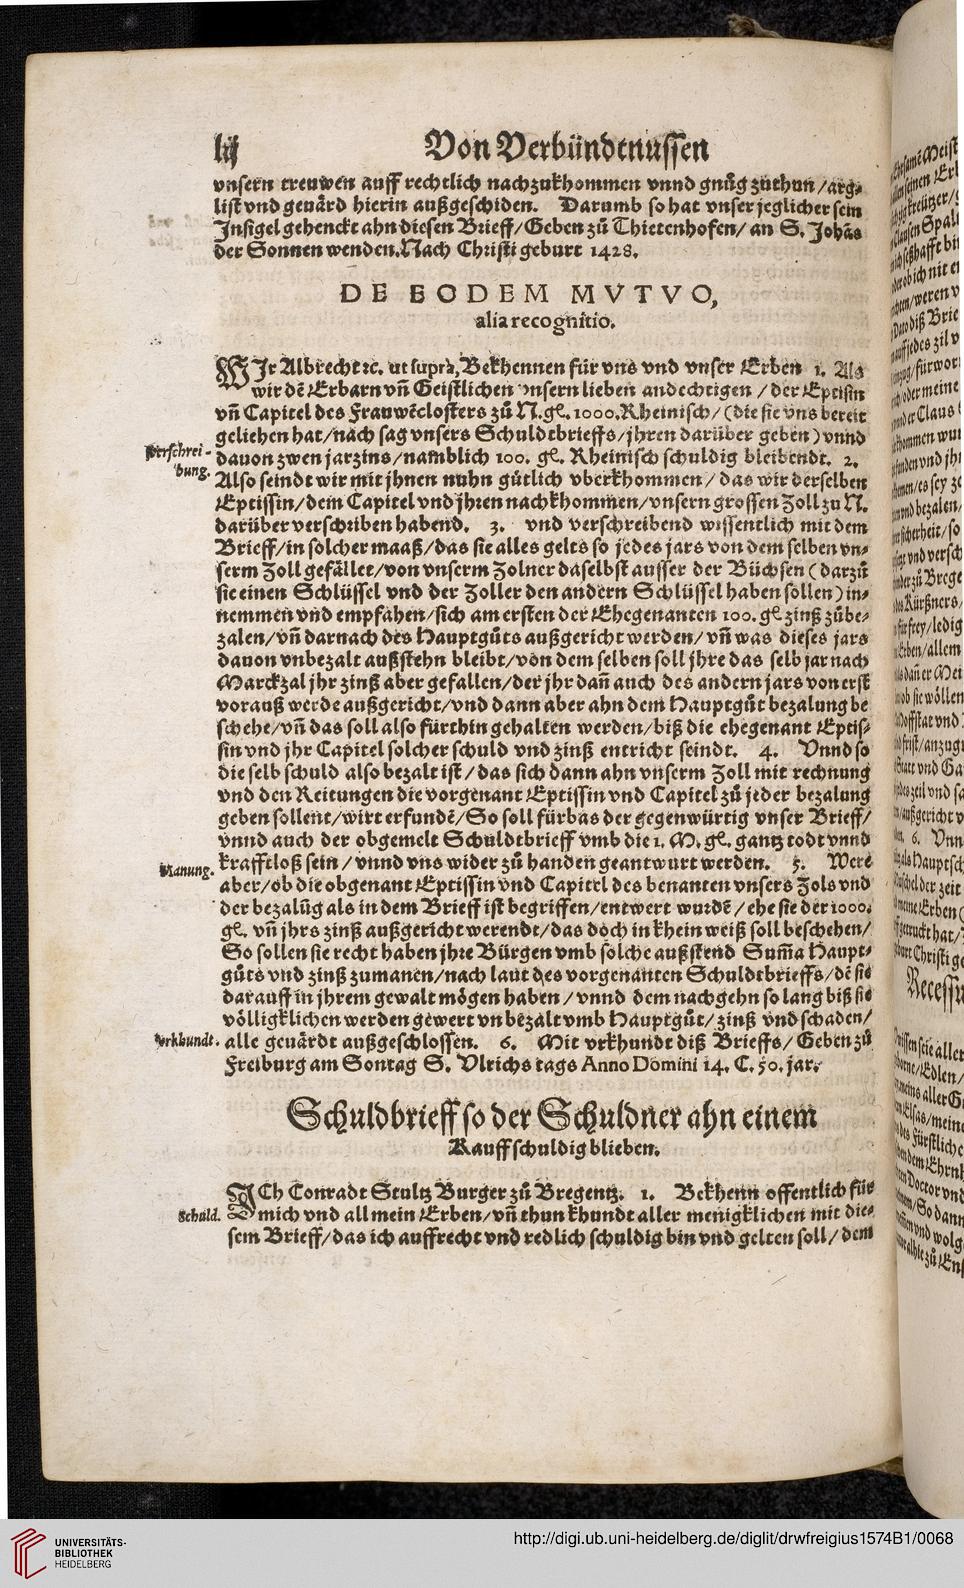 lij Von Verbündtnussen
vnsern treuwen auff rechtlich nachzukhommen vnnd gnůg zuthun/arg-
list vnd geuård hierin außgeschiden. Darumb so hat vnser jeglicher sein
Insigel gehenckt ahn diesen Brieff/Geben zů Thietenhofen/ an S. Johãs
der Sonnen wenden. Nach Christi geburt 1428.
DE EODEM MVTVO,
alia recognitio.
WIr Albrecht ꝛc. ut suprà, Bekhennen für vns vnd vnser Erben 1. Als
wir dẽ Erbarn vñ Geistlichen vnsern lieben andechtigen / der Eptisin
vñ Capitel des Frauwẽclosters zů N. gl. 1000. Rheinisch/ (die sie vns bereit
geliehen hat/nach sag vnsers Schuldtbrieffs/jhren darüber geben) vnnd
Verschrei-
bung.
dauon zwen jarzins/namblich 100. gl. Rheinisch schuldig bleibendt. 2.
Also seindt wir mit jhnen nuhn gütlich vberkhommen/ das wir derselben
Eptissin/dem Capitel vnd jhren nachkhommen/vnsern grossen Zoll zu N.
darüber verschriben habend. 3. vnd verschreibend wissentlich mit dem
Brieff/in solcher maaß/das sie alles gelts so jedes jars von dem selben vn-
serm Zoll gefållet/von vnserm Zolner daselbst ausser der Büchsen (darzů
sie einen Schlüssel vnd der Zoller den andern Schlüssel haben sollen) in-
nemmen vnd empfahen/sich am ersten der Ehegenanten 100. gl zinß zůbe-
zalen/vñ darnach des Hauptgůts außgericht werden/ vñ was dieses jars
dauon vnbezalt außstehn bleibt/von dem selben soll jhre das selb jar nach
Marckzal jhr zinß aber gefallen/der jhr dañ auch des andern jars von erst
vorauß werde außgericht/vnd dann aber ahn dem Hauptgůt bezalung be
schehe/vñ das soll also fürthin gehalten werden/biß die ehegenant Eptis-
sin vnd jhr Capitel solcher schuld vnd zinß entricht seindt. 4. Vnnd so
die selb schuld also bezalt ist/das sich dann ahn vnserm Zoll mit rechnung
vnd den Reitungen die vorgenant Eptissin vnd Capitel zů jeder bezalung
geben sollent/wirt erfundẽ/So soll fürbas der gegenwürtig vnser Brieff/
vnnd auch der obgemelt Schuldtbrieff vmb die 1. M. gl. gantz todt vnnd
Manung.
krafftloß sein / vnnd vns wider zů handen geantwurt werden. 5. Were
aber/ob die obgenant Eptissin vnd Capitel des benanten vnsers Zols vnd
der bezalũg als in dem Brieff ist begriffen/entwert wurdẽ / ehe sie der 1000.
gl. vñ jhrs zinß außgericht werendt/das doch in khein weiß soll beschehen/
So sollen sie recht haben jhre Bürgen vmb solche außstend Suma Haupt-
gůts vnd zinß zumanen/nach laut des vorgenanten Schuldtbrieffs/dẽ sie
darauff in jhrem gewalt mögen haben / vnnd dem nachgehn so lang biß sie
völligklichen werden gewert vnbezalt vmb Hauptgůt/ zinß vnd schaden/
Vrkhundt.
alle geuårdt außgeschlossen. 6. Mit vrkhundt diß Brieffs/ Geben zů
Freiburg am Sontag S. Vlrichs tags Anno Domini 14. C. 50. jar.
Schuldbrieff so der Schuldner ahn einem
Kauff schuldig blieben.
ICh Conradt Stultz Burger zů Bregentz. 1. Bekhenn offentlich für
Schuld.
mich vnd all mein Erben/vñ thun khundt aller menigklichen mit die-
sem Brieff/das ich auffrecht vnd redlich schuldig bin vnd gelten soll/ dem
UNIVERSITÄTS-
BIBLIOTHEK
HEIDELBERG
http://digi.ub.uni-heidelberg.de/diglit/drwfreigius1574B1/0068